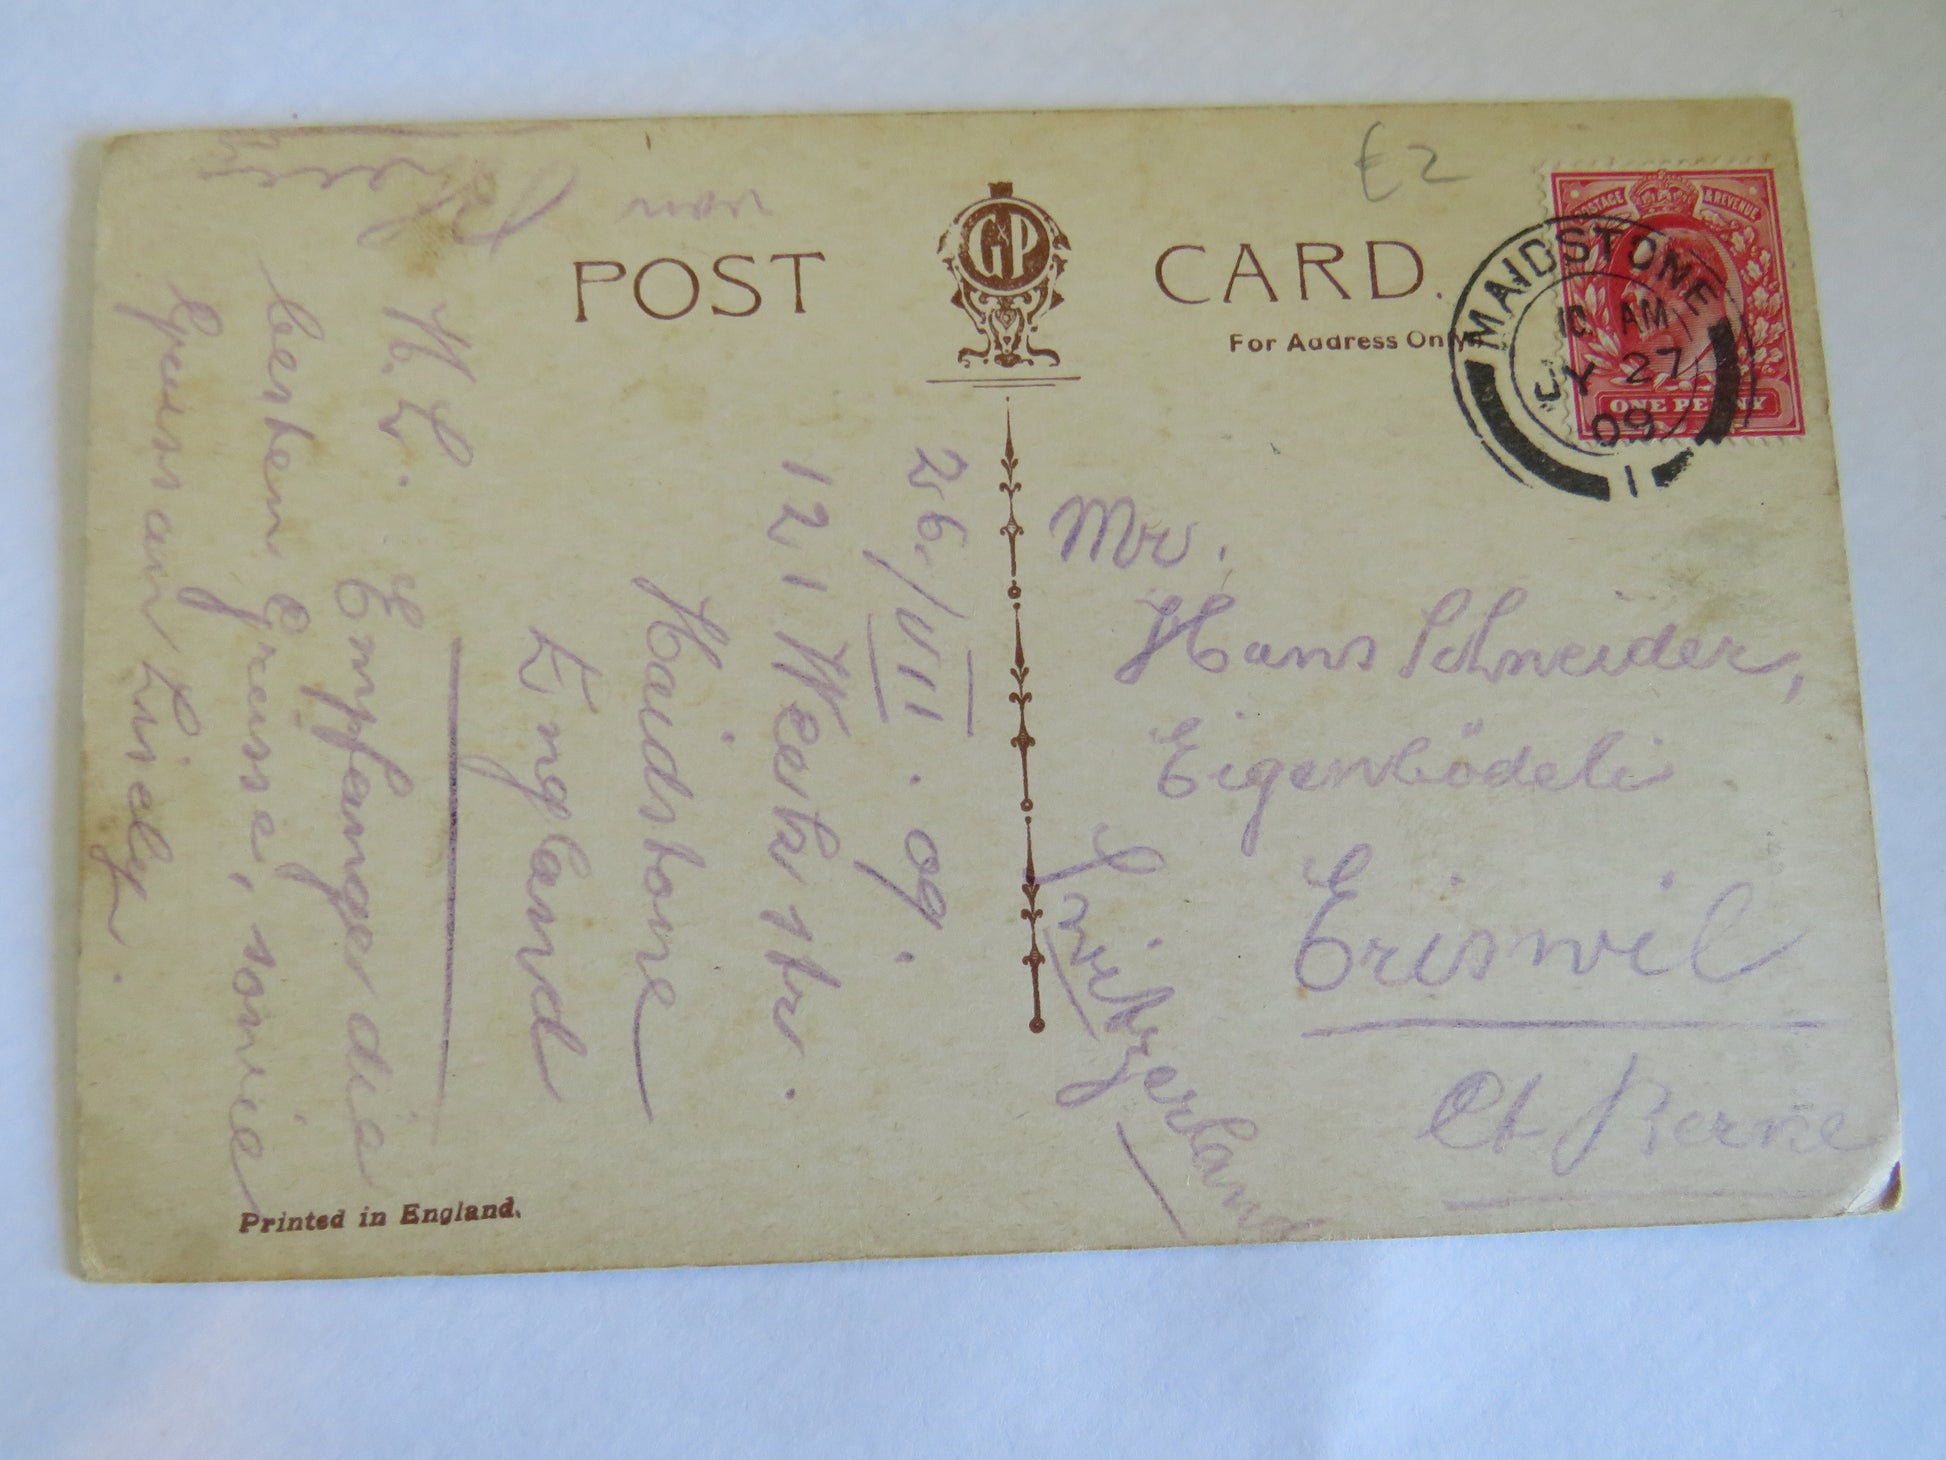 POST CARD.
G P
For Address Only.
£2
POSTAGE & REVENUE
ONE PENNY
MAIDSTONE
10 AM
JY 27
09
1
26./VII.09.
121 Westr str.
Maidstone
England
M. L. Empfange die
besten Grüsse, sowie
Gruss an Lisely.
von
Mr.
Hans Schneider,
Eigenbödeli
Eriswil
Ct Berne
Switzerland
Printed in England.